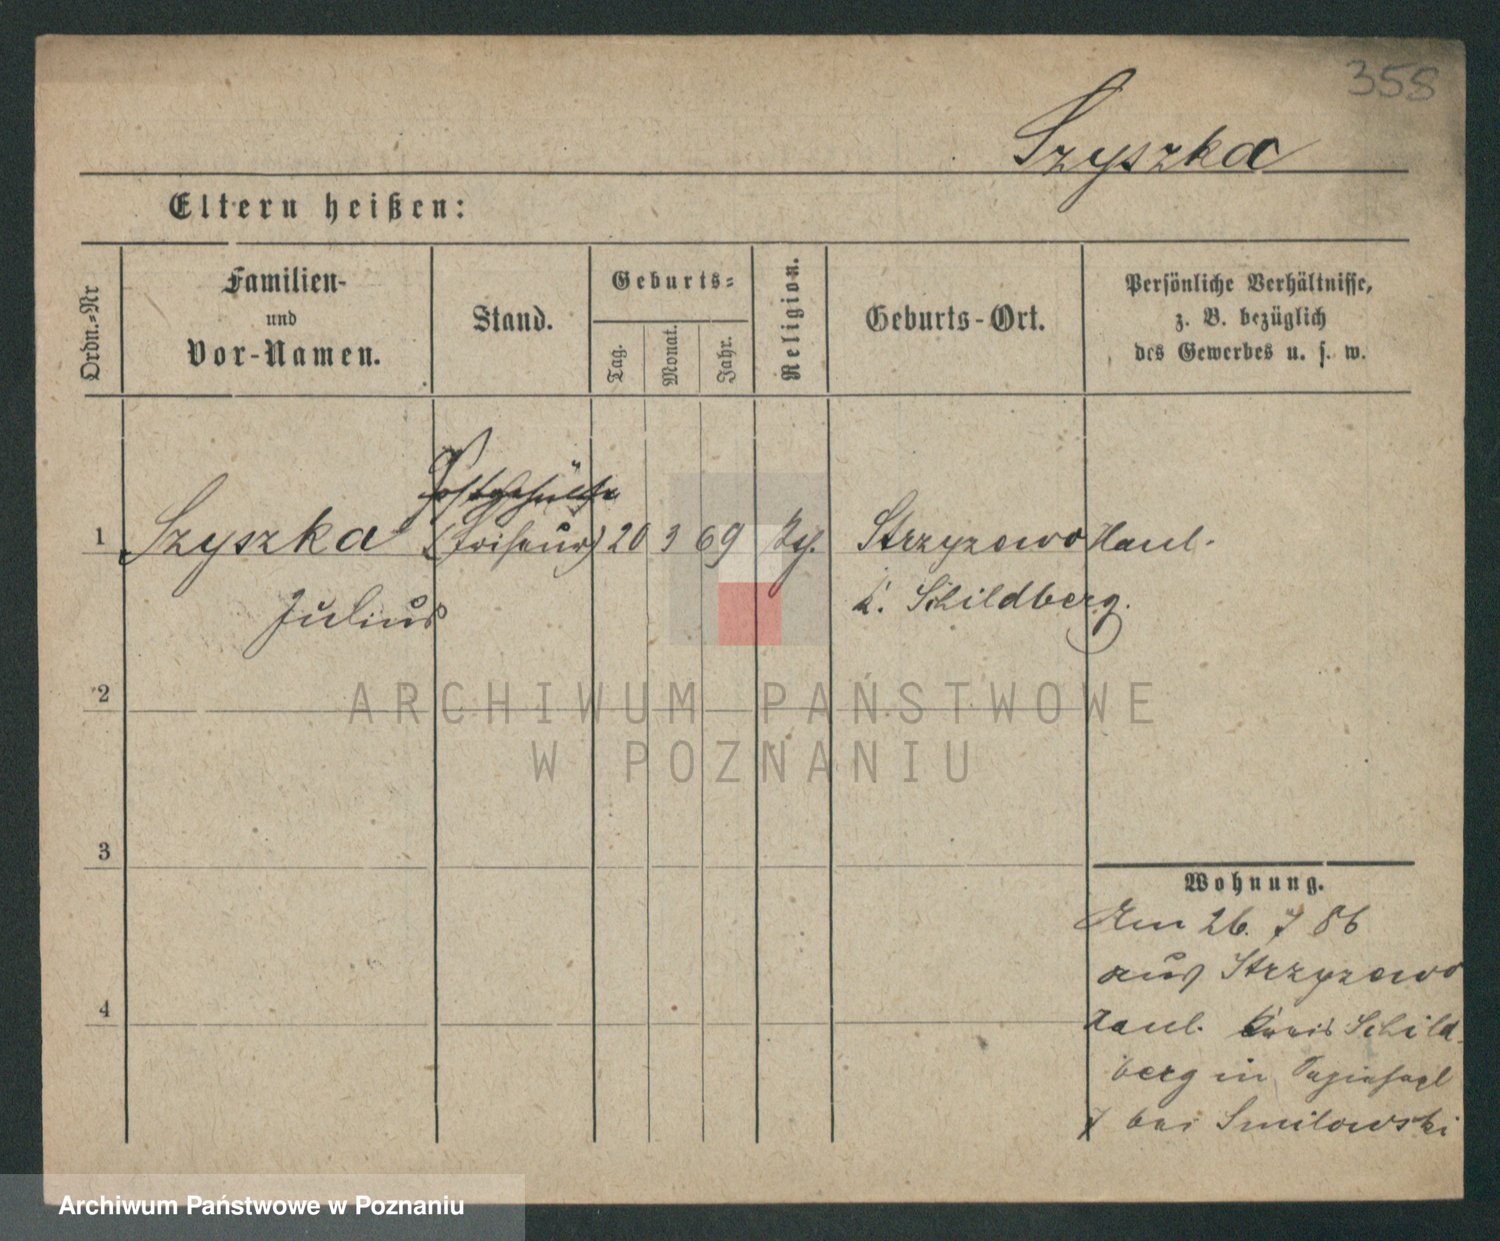 358
Szyszka
Eltern heißen:
Ordn.-Nr
Familien-
und
Vor-Namen.
Stand.
Geburts-
Tag.
Monat.
Jahr.
Religion.
Geburts-Ort.
Persönliche Verhältnisse,
z. B. bezüglich
des Gewerbes u. s. w.
Postgehülfe
1 Szyszka (Friseur) 20 3 69 Strzyzewo Haul.
Julius K. Schildberg.
2
ARCHIWUM PAŃSTWOWE
W POZNANIU
3
Wohnung.
Am 26. 7 86
aus Strzyzewo
4
Haul. Kreis Schild-
berg in
7 bei Smilowski
Archiwum Państwowe w Poznaniu